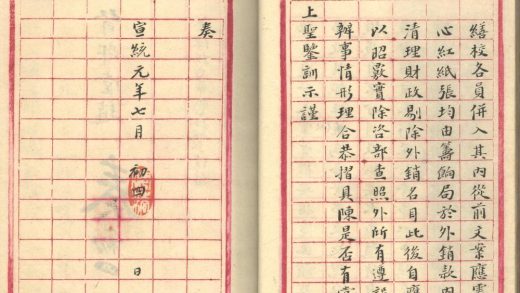 繕校各員併入其內從前文案應需
心紅紙張均由籌餉局於外銷款
清理財政剔除外銷名目此後自應
以昭覈實除咨部查照外所有遵
辦事情形理合恭摺具陳是否有
上聖鑒訓示謹
奏
宣統元年七月初四日